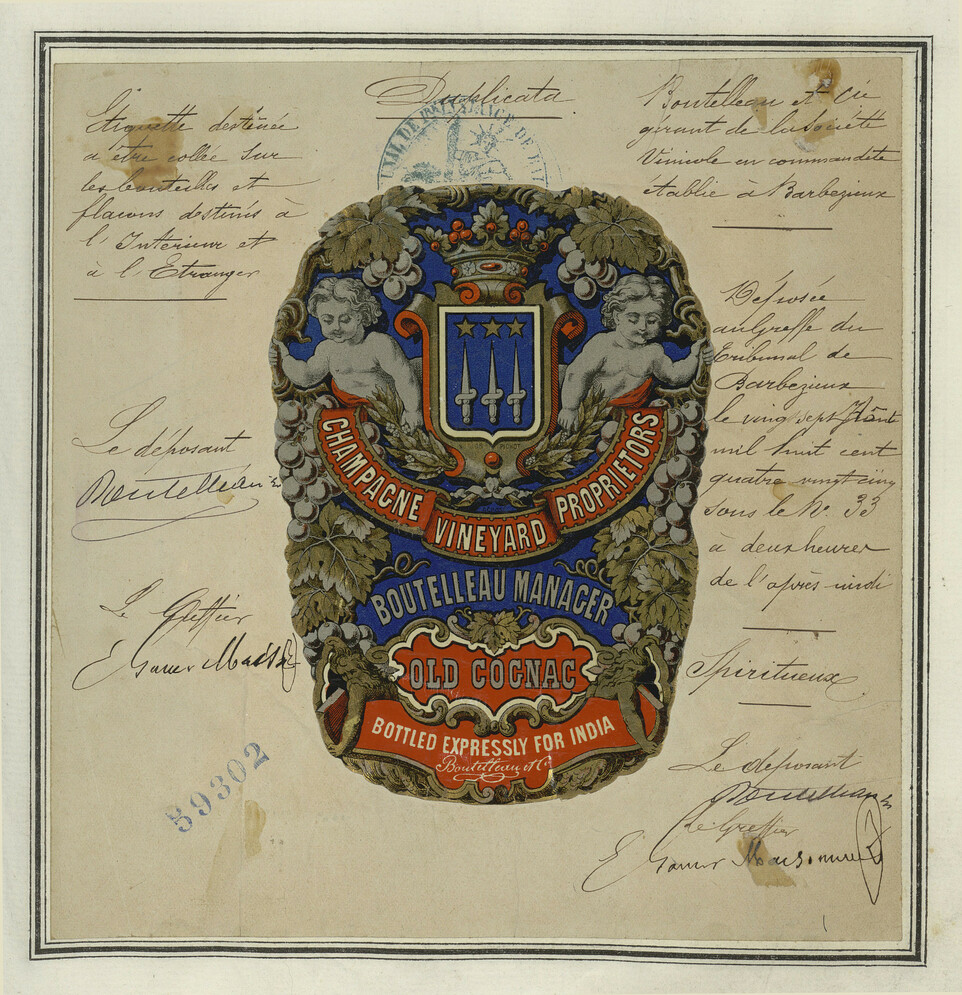 Duplicata
Etiquette destinée
a être collée sur
les bouteilles et
flacons destinés à
l'Interieur et
à l'Etranger
Le deposant
Boutelleau
Le Greffier
59302
CHAMPAGNE VINEYARD PROPRIETORS
BOUTELLEAU MANAGER
OLD COGNAC
BOTTLED EXPRESSLY FOR INDIA
Boutelleau et Cie
Boutelleau et Cie
gérant de la Société
Vinicole en commandite
établie à Barbezieux
Déposée
au Greffe du
tribunal de
Barbezieux
le vingt sept
mil huit cent
quatre vingt cinq
sous le No. 33
à deux heures
de l'après-midi
Spiritueux
Le deposant
Boutelleau
Le Greffier